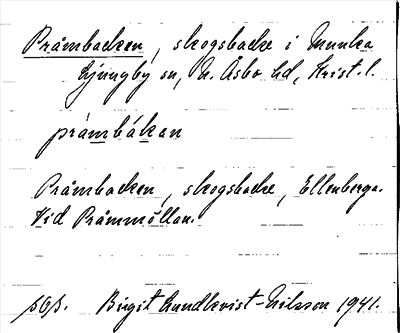 Pråmbacken, skogsbacke i Munka
Ljungby sn, N. Åsbo hd, Krist. l.
pråmbákan
Pråmbacken, skogsbacke, Ellenberga.
Vid Pråmmöllan.
sgs. Birgit Lundkvist-Nilsson 1941.